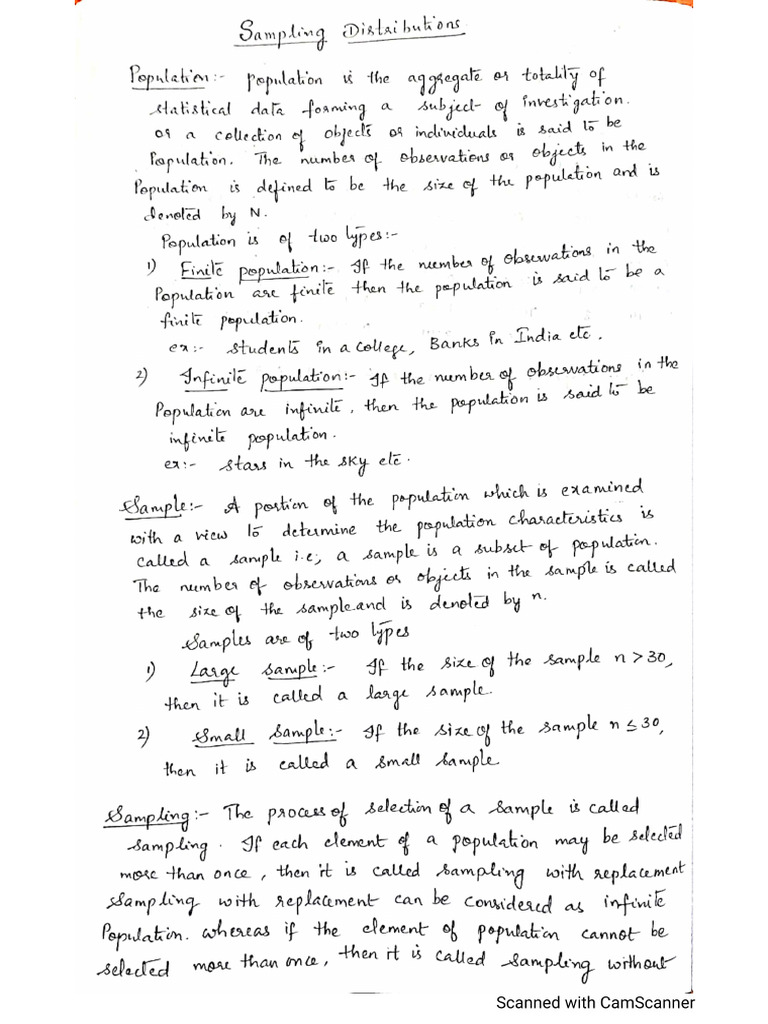 Sampling Distributions
Population:- Population is the aggregate or totality of
statistical data forming a subject of investigation.
or a collection of objects or individuals is said to be
Population. The number of observations or objects in the
Population is defined to be the size of the population and is
denoted by N.
Population is of two types:-
1) Finite population:- If the number of observations in the
Population are finite then the population is said to be a
finite population.
ex:- students in a college, Banks in India etc.
2) Infinite population:- If the number of observations in the
Population are infinite, then the population is said to be
infinite population.
ex:- stars in the sky etc.
Sample:- A portion of the population which is examined
with a view to determine the population characteristics is
called a sample i.e; a sample is a subset of population.
The number of observations or objects in the sample is called
the size of the sample and is denoted by n.
Samples are of two types
1) Large sample:- If the size of the sample n > 30,
then it is called a large sample.
2) Small sample:- If the size of the sample n ≤ 30,
then it is called a small sample
Sampling:- The process of selection of a sample is called
sampling. If each element of a population may be selected
more than once, then it is called sampling with replacement
Sampling with replacement can be considered as infinite
Population. whereas if the element of population cannot be
selected more than once, then it is called sampling without
Scanned with CamScanner